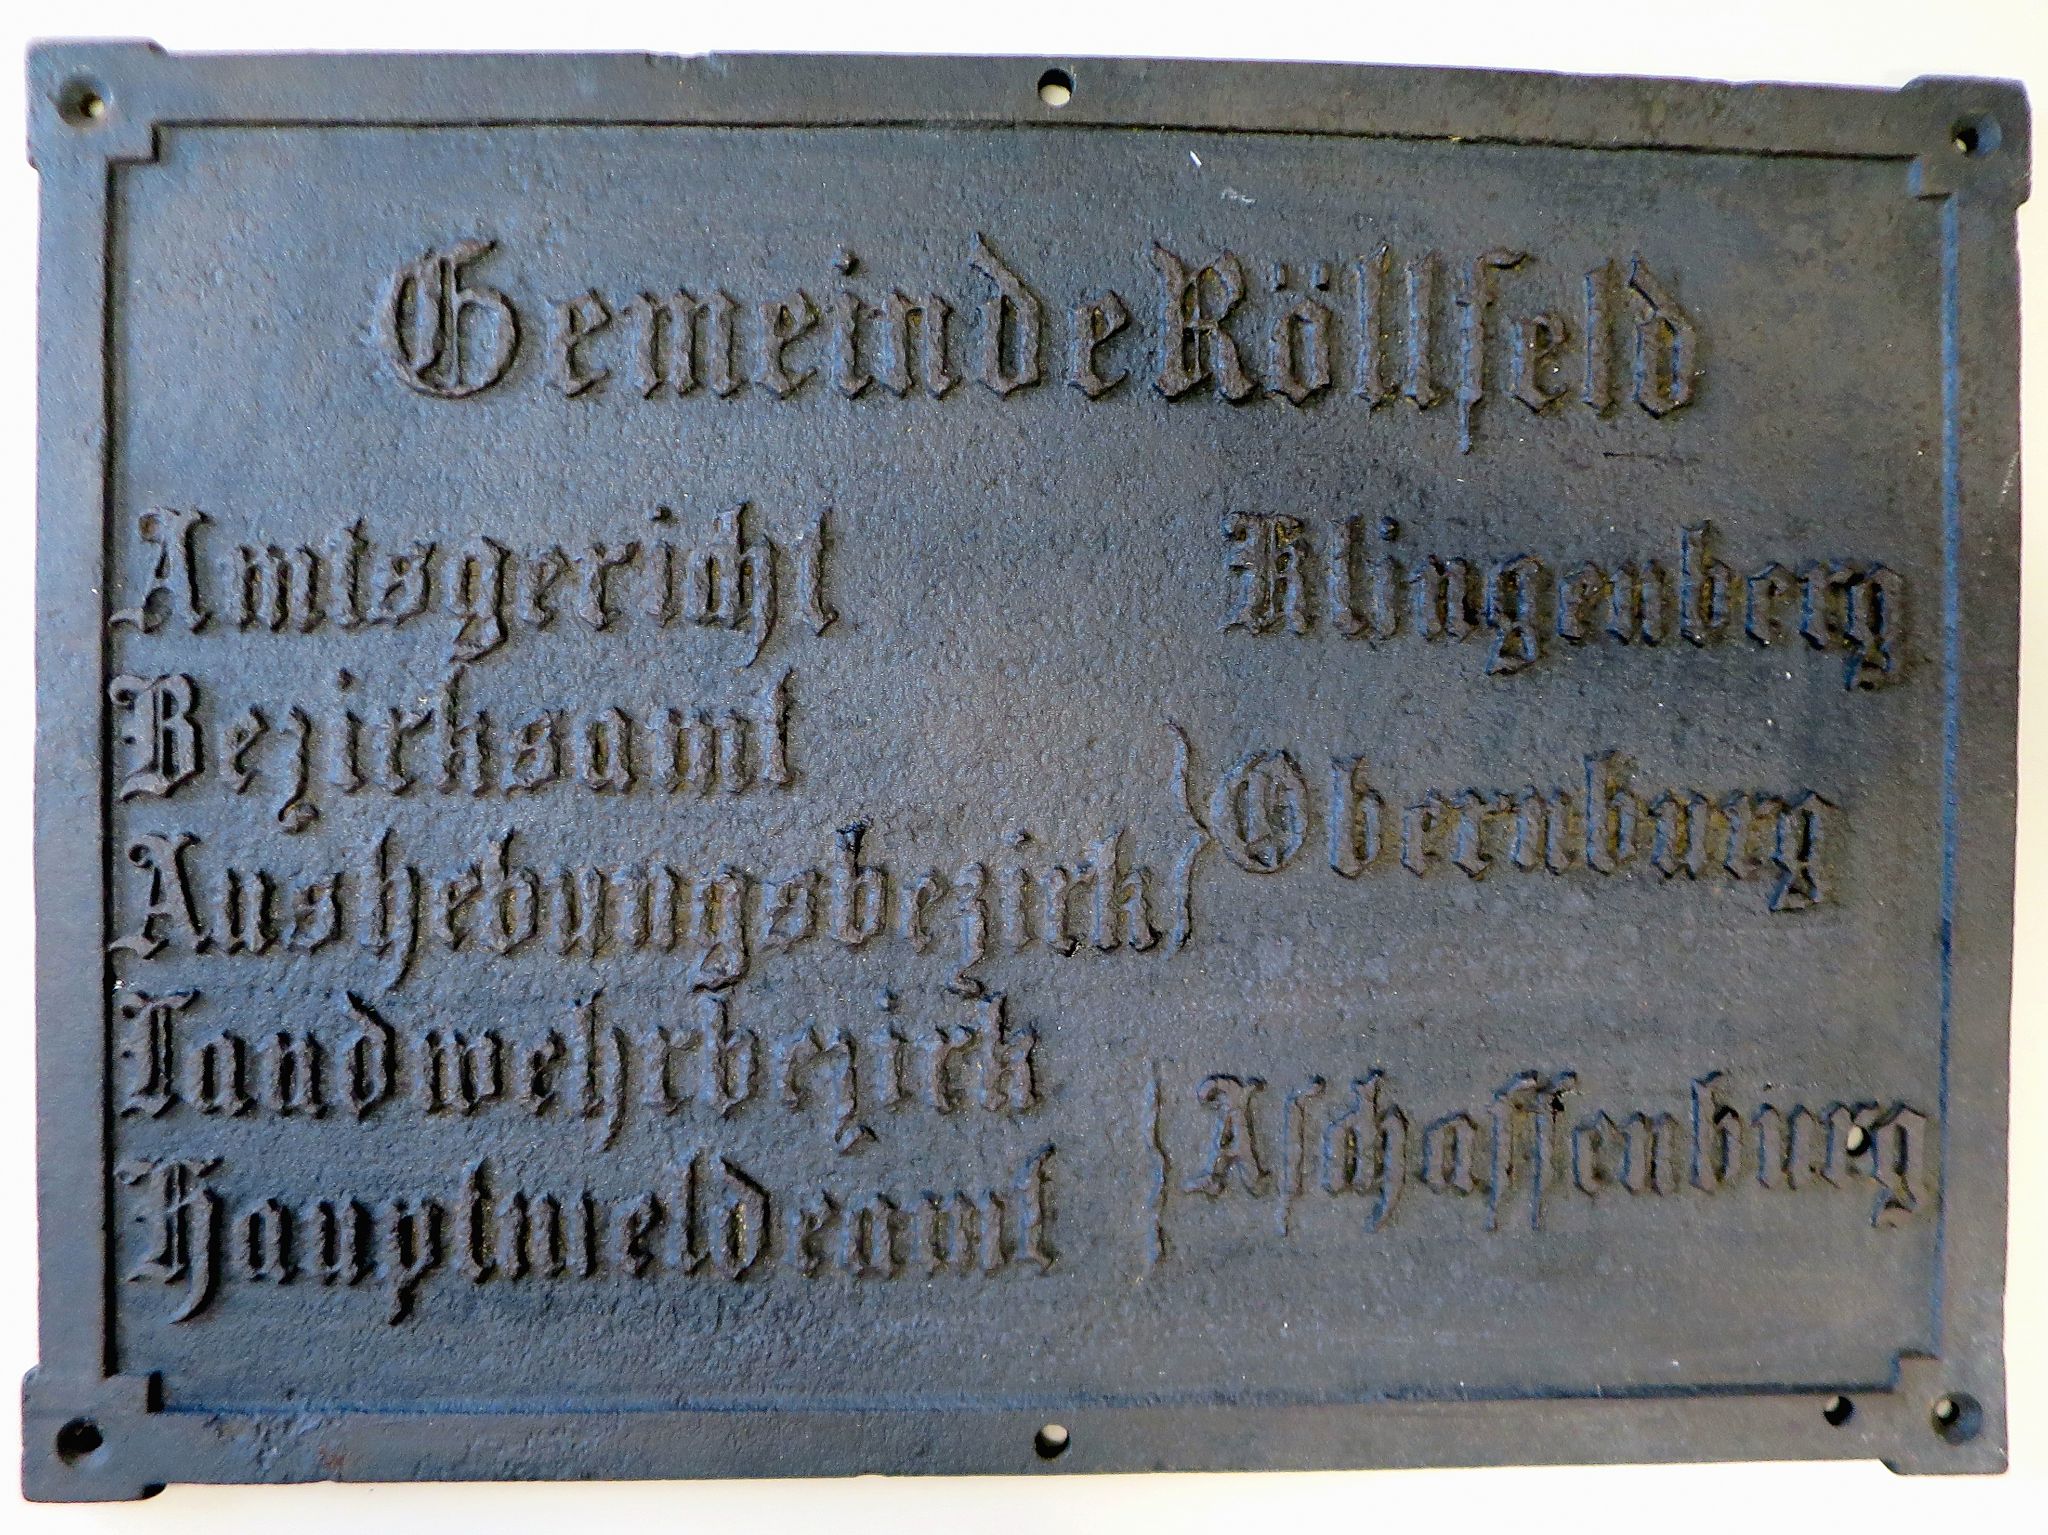 Gemeinde Röllfeld
Amtsgericht Klingenberg
Bezirksamt
Aushebungsbezirk } Obernburg
Landwehrbezirk
Hauptmeldeamt } Aschaffenburg